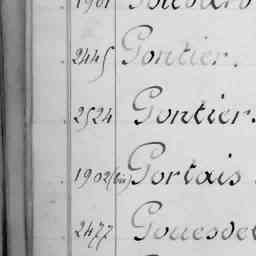 2445 Gontier.
2524 Gontier.
1902(bis) Portais
2477 Gouesde